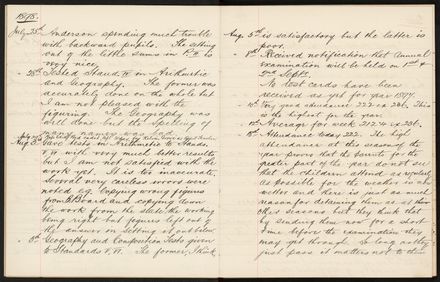 1878.
July 25th Anderson spending much trouble
with backward pupils. The setting
out of the little sums in P. II is
very nice.
28th Tested Stand. IV in Arithmetic
and Geography. The former was
accurately done on the whole but
I am not pleased with the
figuring. The Geography was
well done but the spelling of
many names was bad.
July 29th
Aug 5th Gave tests in Arithmetic to Stands.
V, VI with very much better results
but I am not satisfied with the
work yet. It is too inaccurate,
Several very careless errors were
noted e.g. Copying wrong figures
from B Board and copying down
the work from the slate, the working
being right but figures left out of
the answer on setting it out below.
6th Geography and Composition tests given
to Standards V, VI. The former, I think,
Aug. 5th is satisfactory but the letter is
poor.
8th Received notification that Annual
examination will be held on 1st &
2nd Septr.
No test cards have been
received as yet for year 1878.
10th Very good attendance 222 ex 236. This
is the highest for the year.
12th Average for week 212 ex 236.
15th Attendance today 222. The high
attendance at this season of the
year proves that the parents for the
greater part of the year do not see
that the children attend as regularly
as possible for the weather is no
better and there is just as much
reason for detaining them as at other
seasons but they think that
by sending them now for a short
time before the examination they
may get through. So long as they
just pass it matters not to them